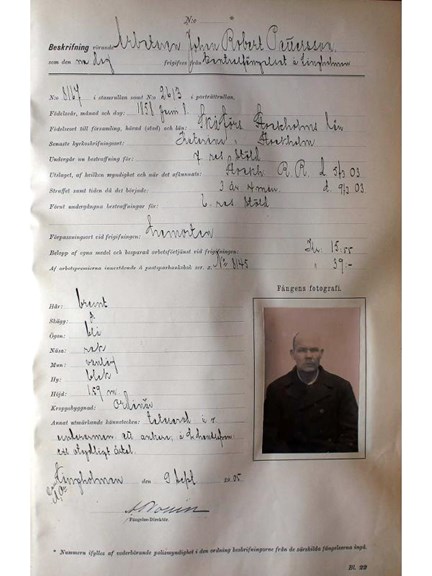 N:o *
Beskrifning rörande Arbetaren Johan Robert Pettersson
som den na dag frigifves från Centralfängelset å Långholmen.
N:o 8167 i stamrullan samt N:o 2613 i porträttrullan.
Födelseår, månad och dag: 1858
Födelseort till församling, härad (stad) och län: Stockholms län
Senaste kyrkoskrifningsort: Stockholm
Undergår nu bestraffning för: 7 resan stöld
Utslaget, af hvilken myndighet och när det afkunnats: R.R. d. 5/3 03
Straffet samt tiden då det börjades: 3 år 4 mån. d. 9/3 03
Förut undergångna bestraffningar för: 6 resan stöld
Förpassningsort vid frigifningen:
Belopp af egna medel och besparad arbetsförtjänst vid frigifningen: Kr. 15.55
Af arbetspremierna innestående å postsparbanksbok ser. N:o 8145 " 39.-
Fångens fotografi.
Hår: brunt
Skägg:
Ögon: blå
Näsa: rak
Mun: vanlig
Hy: blek
Höjd: 159 m.
Kroppsbyggnad: ordinär
Annat utmärkande kännetecken: tatuerad i v.
underarmen ett ankare,
ett otydligt
Långholmen den 9 Sept. 1905.
Fängelse-Direktör.
* Nummern ifylles af vederbörande polismyndighet i den ordning beskrifningarne från de särskilda fängelserna ingå.
Bl. 22